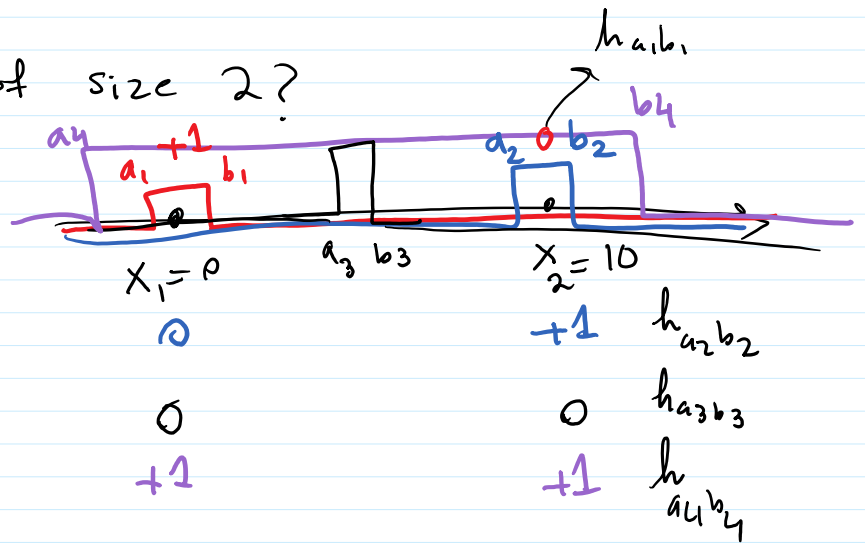 h a₁b₁
of size 2?
a4 +1 a₂ b₂ b4
a₁ b₁ 0
a₃ b₃
x₁ = 0 x₂ = 10
0 +1 h a₂b₂
0 0 h a₃b₃
+1 +1 h a4b4